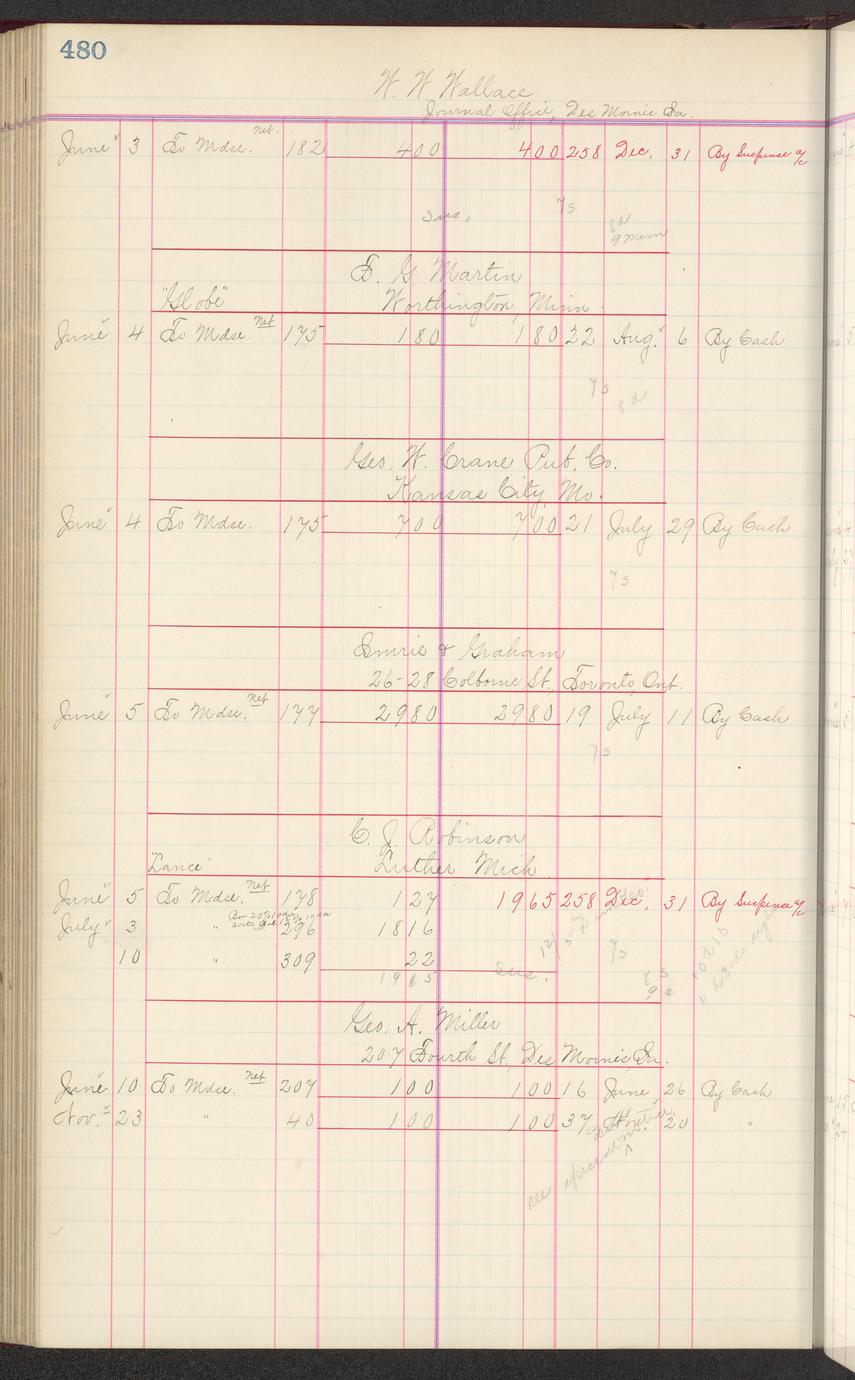 480
W. W. Wallace
Journal Office, Des Moines Ia.
June " 3 To Mdse. net. 182 400 400 258 Dec. 31 By Suspense a/c
Sus, 7s
9 mem
F. G. Martin
"Globe" Worthington, Minn.
June " 4 To Mdse. net 175 180 180 22 Aug. " 6 By Cash
7s
8d
Geo. W. Crane Pub. Co.
Kansas City, Mo.
June " 4 To Mdse. 175 700 700 21 July 29 By Cash
7s
Imrie & Graham
26-28 Colborne St., Toronto, Ont.
June " 5 To Mdse. net 177 2980 2980 19 July 11 By Cash
7s
C. J. Robinson
"Lance" Luther Mich.
June " 5 To Mdse. net 178 127 1965 258 Dec. 31 By Suspense a/c
July " 3 " 296 1816
7s
10 " 309 22
1965 Sus.
8 s
9 s
Geo. A. Miller
207 Fourth St., Des Moines, Ia.
June " 10 To Mdse. net 207 100 100 16 June 26 By Cash
Nov. " 23 " 40 100 100 37 Nov. 20 "
see special